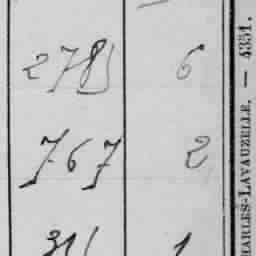 2785 6
767 2
311 1
HARLES-LAVAUZELLE. — 4351.